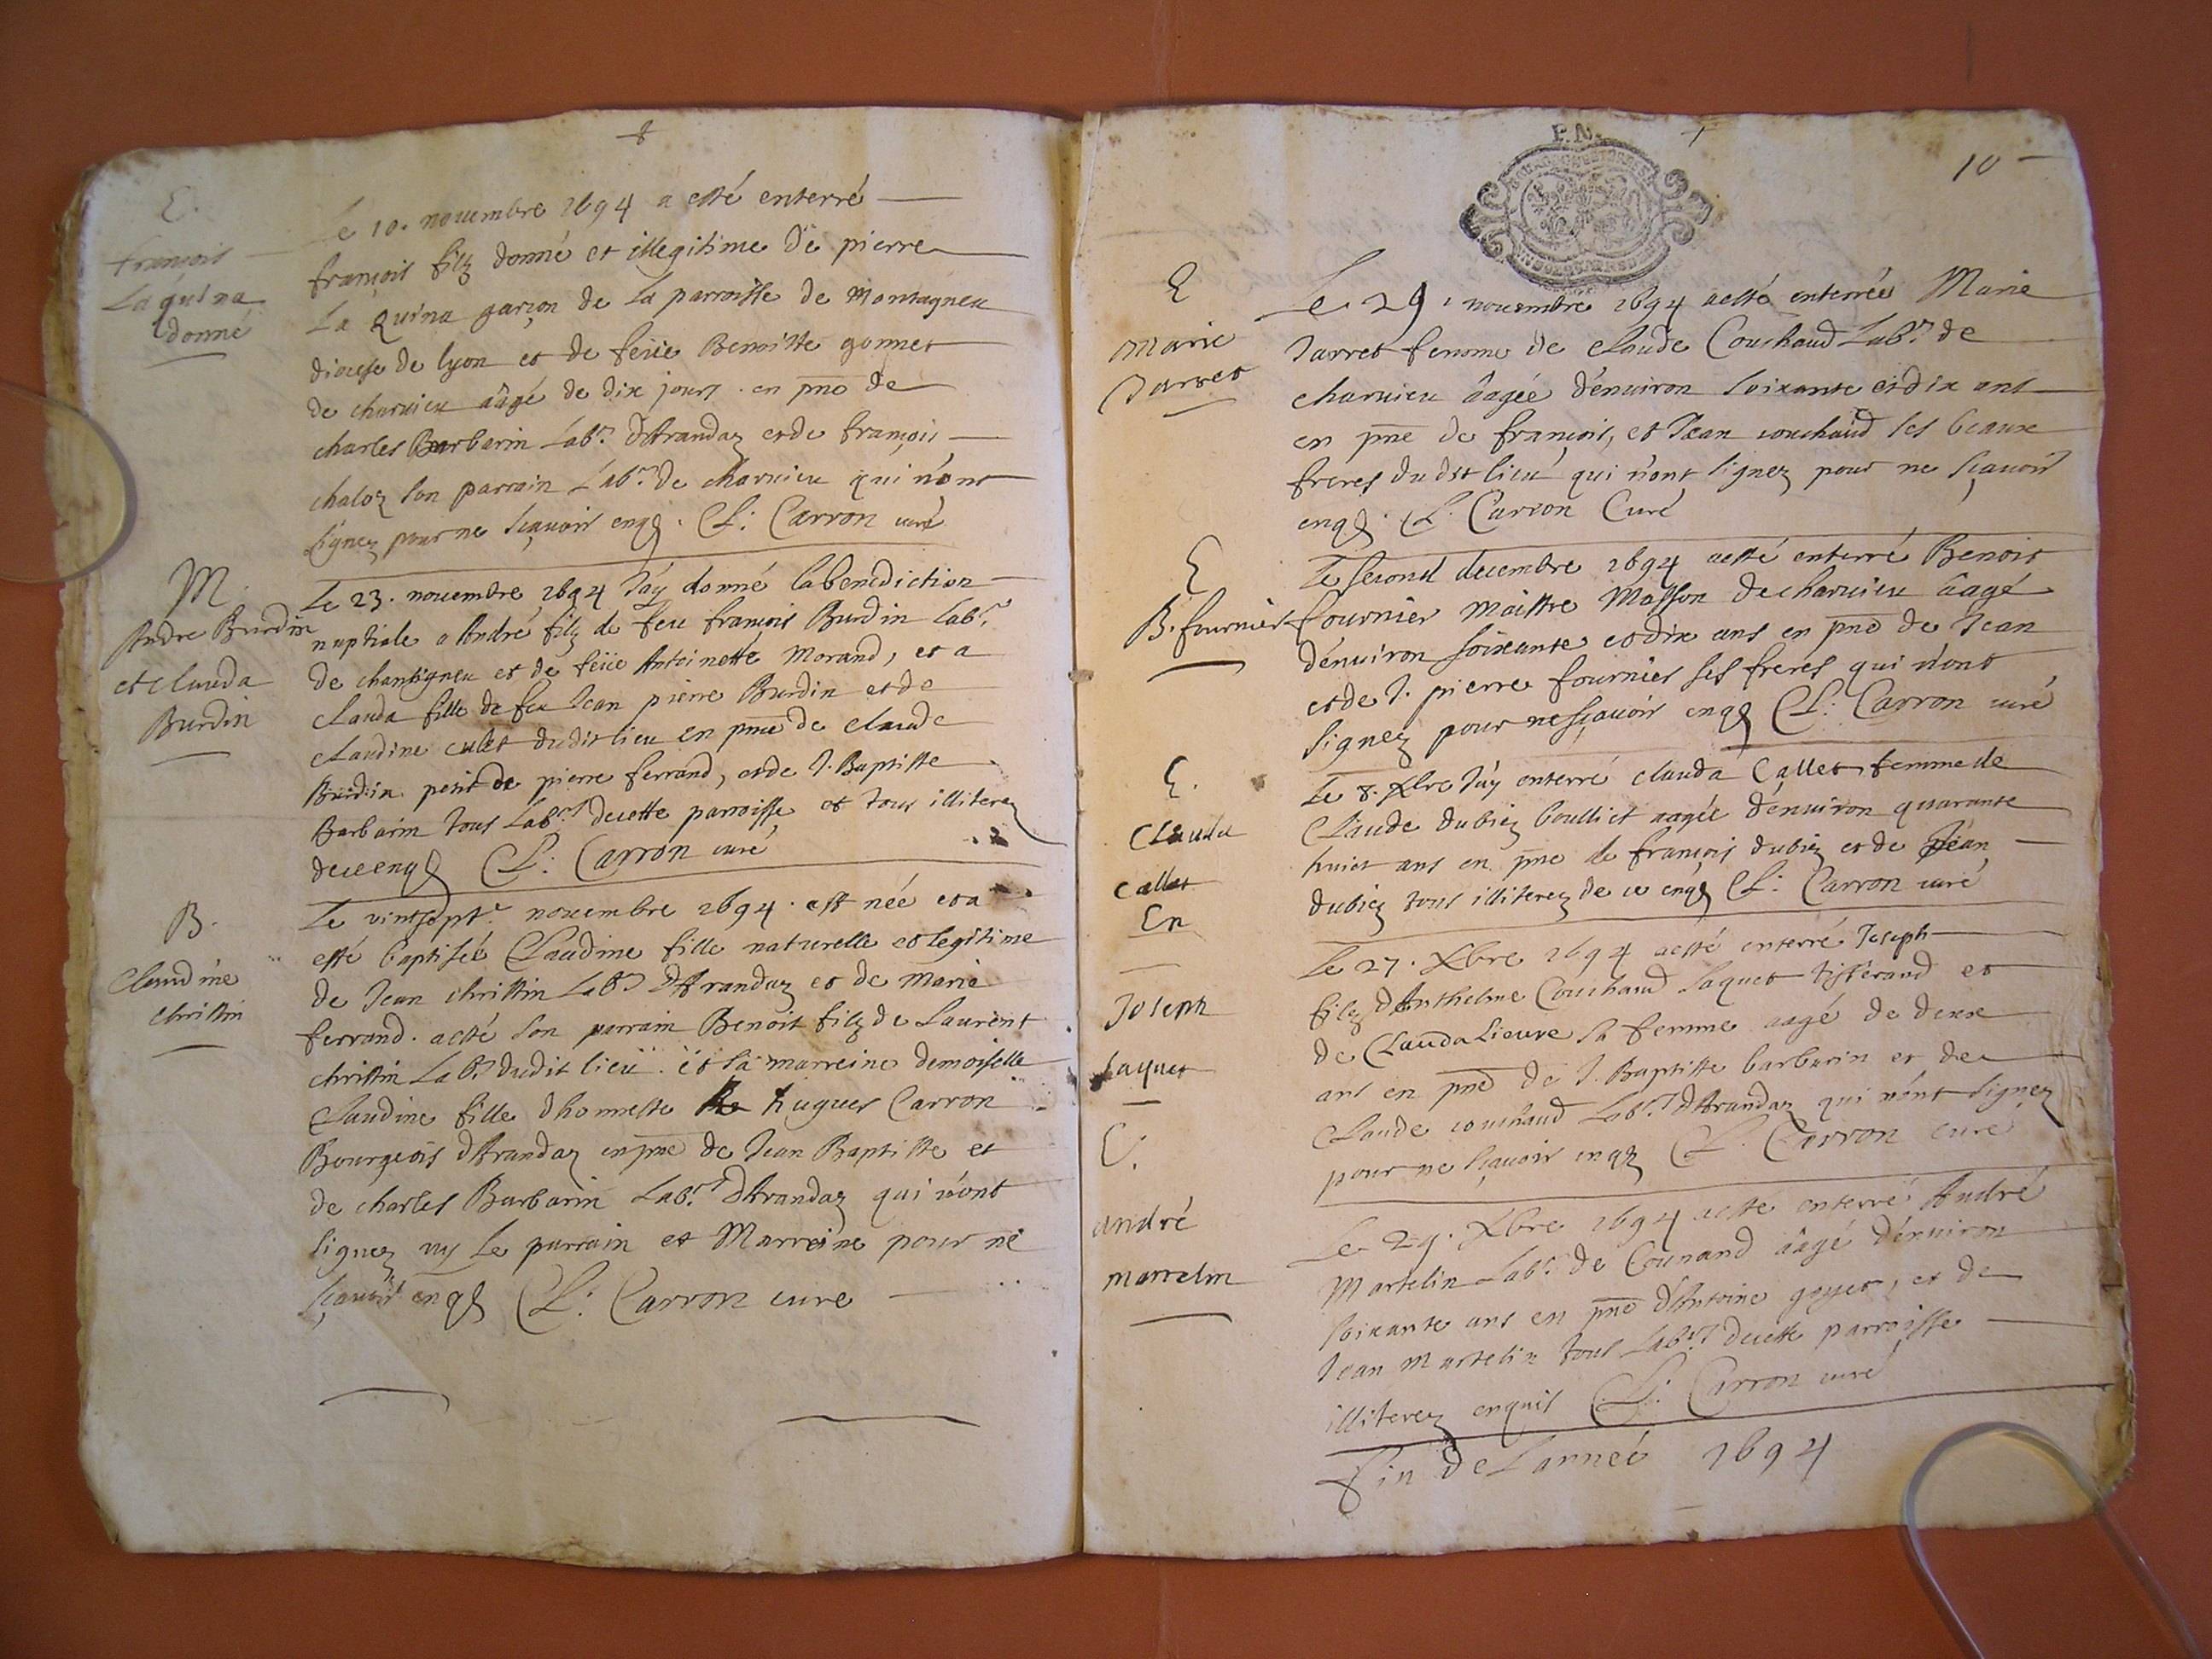 E.
françois
La quina
donné
Le 10. nouembre 1694 a esté enterré
françois filz donné et illegitime de pierre
La Quina garçon de La parroisse de Montagneu
diocese de lyon et de feüe Benoiste gonnet
de charuieu âagé de dix jours. en pñe de
charles Barbarin Labr. d'Arandaz et de françois
chaloz son parrain Labr. de charuieu qui n'ont
signez pour ne sçauoir enqs. CL: Carron curé
M.
Andre Burdin
et Clauda
Burdin
Le 23. nouembre 1694 J'ay donné la benediction
nuptiale a André filz de feu françois Burdin Labr.
de chantigneu et de feüe Antoinette Morand, et a
Clauda fille de feu Jean pierre Burdin et de
Claudine culet dudit lieu en pñe de claude
Burdin petit de pierre ferrand, et de J. Baptiste
Barbarin tous Labrs decette parroisse et tous illiterez
de ce enqs CL: Carron curé
B.
Claudine
christin
Le vintsept.e nouembre 1694. est née et a
esté baptisée Claudine fille naturelle et legitime
de Jean christin Labr d'Arandaz et de Marie
ferrand. a esté son parrain Benoit filz de Laurent
christin Labr dudit lieu. et sa marreine demoiselle
Claudine fille d'honneste hugues Carron
Bourgeois d'Arandaz en pñe de Jean Baptiste et
de charles Barbarin Labrs d'Arandaz qui n'ont
signez ny Le parrain et Marreine pour ne
sçauoir enqs CL: Carron curé
10
E
Marie
Jarret
Le 29. nouembre 1694 a esté enterrée Marie
Jarret femme de claude Couchaud Labr. de
charuieu âagée d'enuiron soixante et dix ans
en pñe de françois, et Jean couchaud ses beaux
freres dudt lieu qui n'ont signez pour ne sçauoir
enqs. CL. Carron Curé
E
B. fournier
Le second decembre 1694 a esté enterré Benoit
fournier maistre Masson de charuieu âagé
d'enuiron soixante et dix ans en pñe de Jean
et de J. pierre fournier ses freres qui n'ont
signez pour ne sçauoir enqs CL: Carron curé
E.
Clauda
Callet
Le 8. Xbre J'ay enterré clauda Callet femme de
Claude dubiez boulliet aagée d'enuiron quarante
huict ans en pñe de françois dubiez et de Jean
dubiez tous illiterez de ce enqs CL: Carron curé
En
Joseph
Jaquet
Le 27. Xbre 1694 a esté enterré Joseph
filz d'Anthelme Couchaud Jaquet Tisserand et
de Clauda Lieure sa femme aagé de deux
ans en pñe de J. Baptiste barbarin et de
Claude couchaud Labrs d'Arandaz qui n'ont signez
pour ne sçauoir enqz CL. Carron curé
E.
André
Martelin
Le 29. Xbre 1694 a esté enterré André
Martelin Labr. de Counand âagé d'enuiron
soixante ans en pñe d'Antoine goyet, et de
Jean Martelin tous Labrs decette parroisse
illiterez enquis CL: Carron curé
Fin de L'année 1694